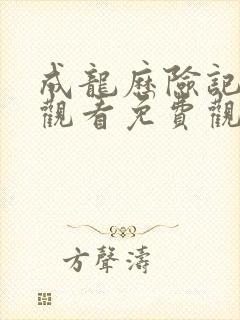 成龍歷險記
觀看免費觀
方聲濤